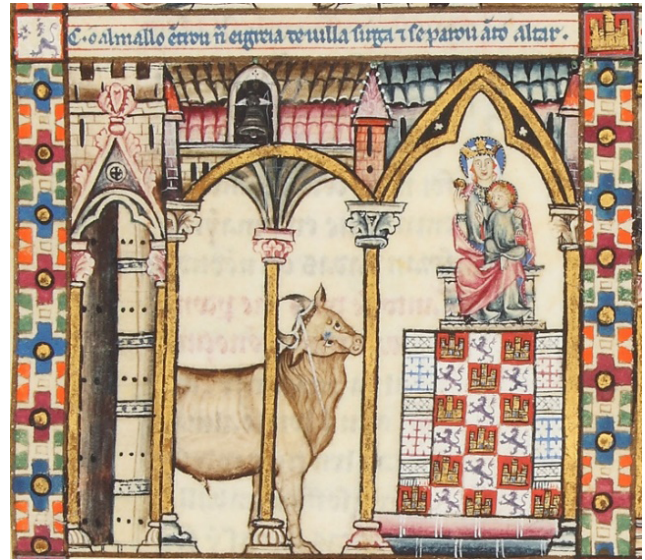 C· o almallo ẽtrou ñ eigreia de villa sirga ⁊ se parou ãto altar·